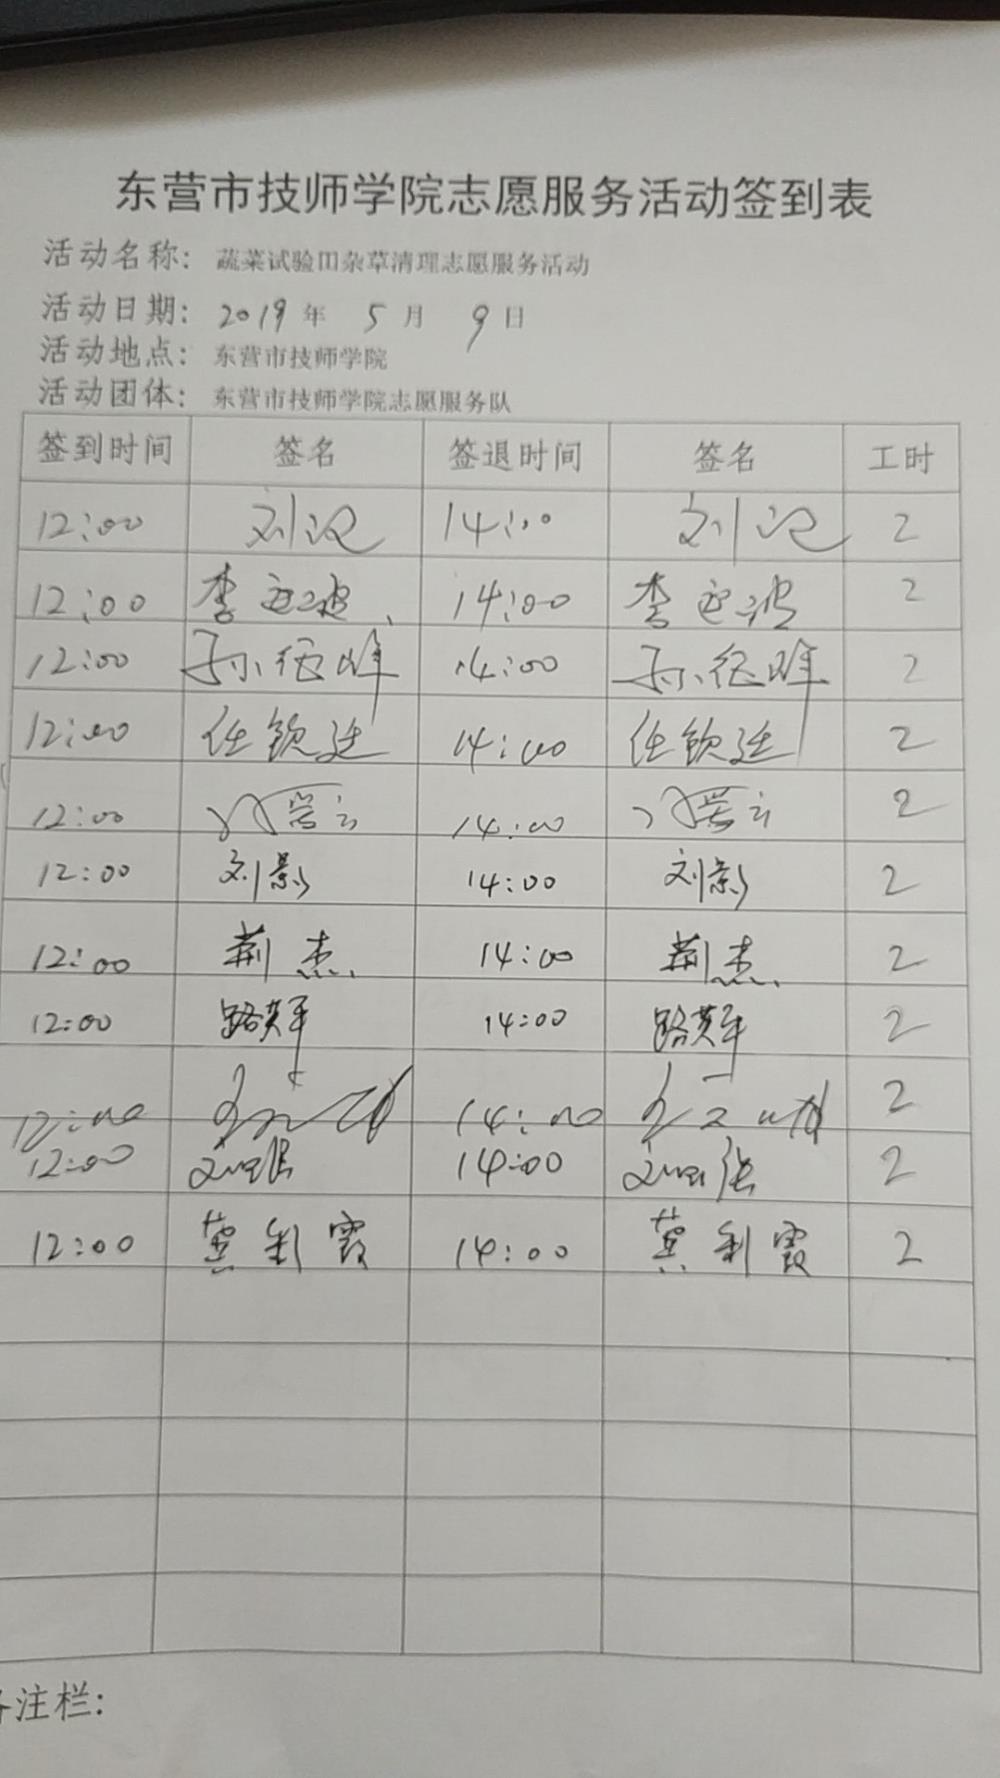 东营市技师学院志愿服务活动签到表
活动名称：蔬菜试验田杂草清理志愿服务活动
活动日期：2019年 5月 9日
活动地点：东营市技师学院
活动团体：东营市技师学院志愿服务队
签到时间 签名 签退时间 签名 工时
12:00 刘 14:00 刘 2
12:00 李 14:00 李 2
12:00 孙征峰 14:00 孙征峰 2
12:00 任钦廷 14:00 任钦廷 2
12:00 14:00 2
12:00 刘影 14:00 刘影 2
12:00 荆杰 14:00 荆杰 2
12:00 路英军 14:00 路英军 2
12:00 14:00 2
12:00 14:00 2
12:00 莫利霞 14:00 莫利霞 2
注栏：